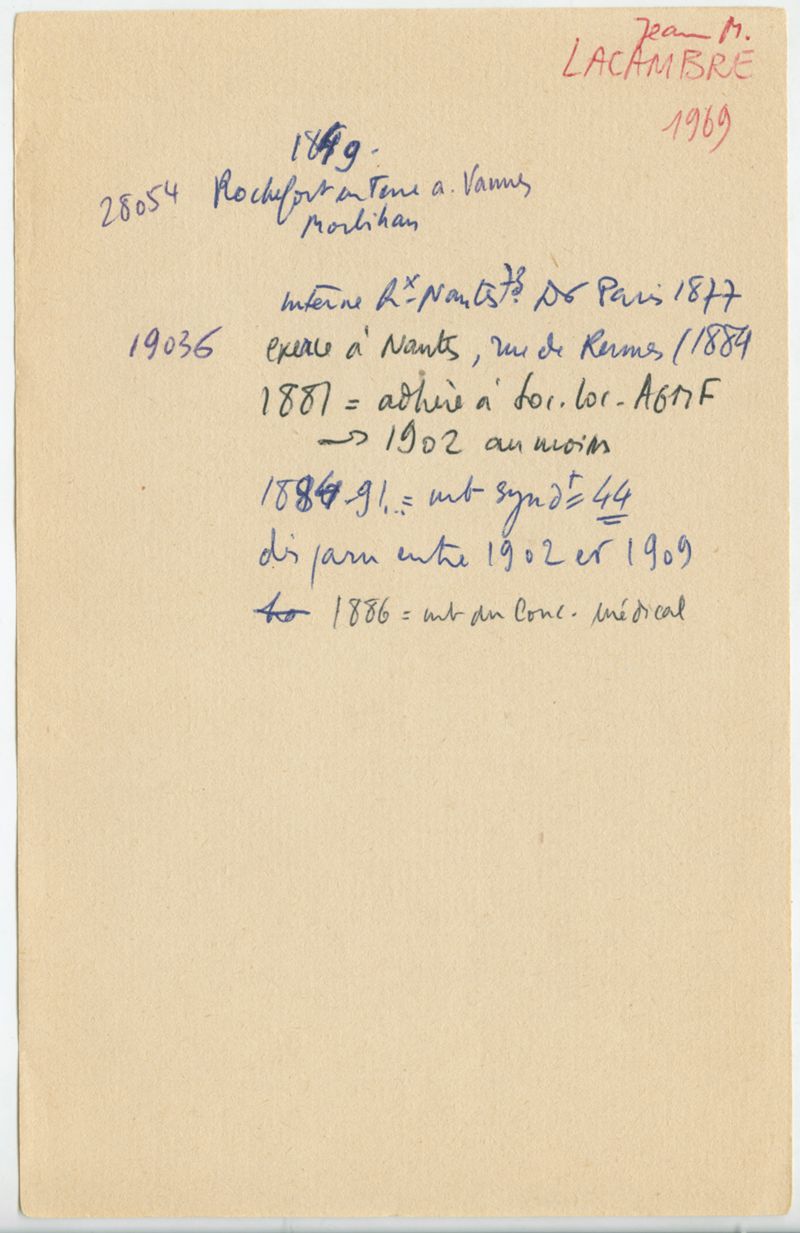 Jean M.
LACAMBRE
1969
1849.
28054 Rochefort en Terre a. Vannes
Morbihan
interne Hx Nantes 73. Dr Paris 1877
19036 exerce à Nantes, rue de Rennes (1884
1881 = adhère à Soc. loc. AGMF
→ 1902 au moins
1884-91... = mb syndt = 44
disparu entre 1902 et 1909
1886 = mb du Conc. médical